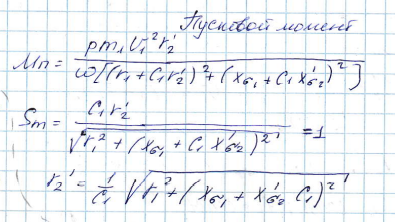 Пусковой момент
Mп = pm₁U₁²r₂′ / ω[(r₁ + C₁r₂′)² + (xσ₁ + C₁xσ₂′)²]
Sm = C₁r₂′ / √(r₁² + (xσ₁ + C₁xσ₂′)²) = 1
r₂′ = 1/C₁ √(r₁² + (xσ₁ + xσ₂′ C₁)²)